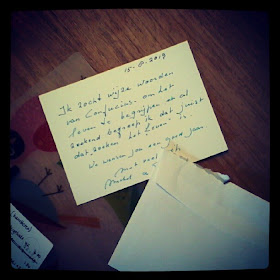 Ik zocht wijze woorden
van Confucius om het
leven te begrijpen en al
zoekend begreep ik dat juist
dat zoeken het leven is.
We wensen jou een goed jaar
Met veel